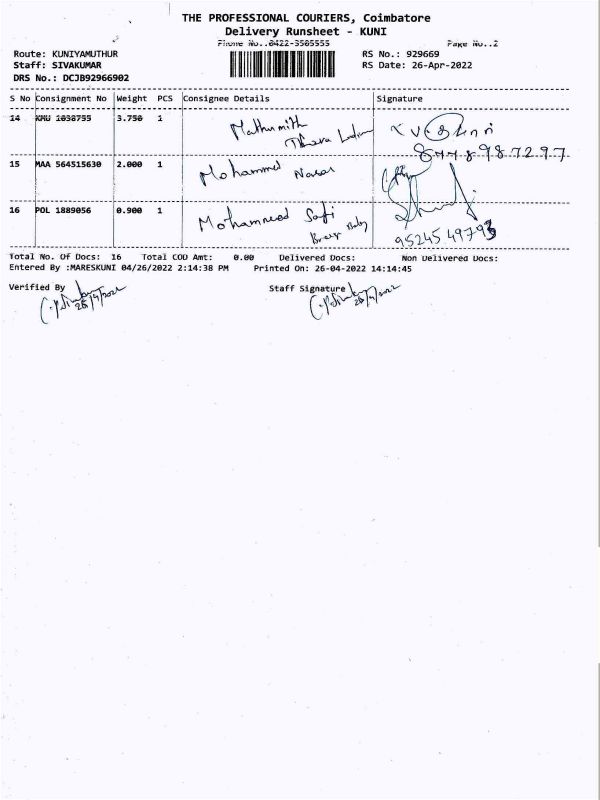 THE PROFESSIONAL COURIERS, Coimbatore
Delivery Runsheet - KUNI
Phone No..0422-3505555 Page No..2
Route: KUNIYAMUTHUR RS No.: 929669
Staff: SIVAKUMAR RS Date: 26-Apr-2022
DRS No.: DCJB92966902
S No Consignment No Weight PCS Consignee Details Signature
14 KMU 1038755 3.750 1
8778987297
15 MAA 564515630 2.000 1 Mohammed Nasar
16 POL 1889056 0.900 1 Mohammed Safi
9524549793
Total No. Of Docs: 16 Total COD Amt: 0.00 Delivered Docs: Non Delivered Docs:
Entered By :MARESKUNI 04/26/2022 2:14:38 PM Printed On: 26-04-2022 14:14:45
Verified By Staff Signature
26/4/2022 26/4/2022